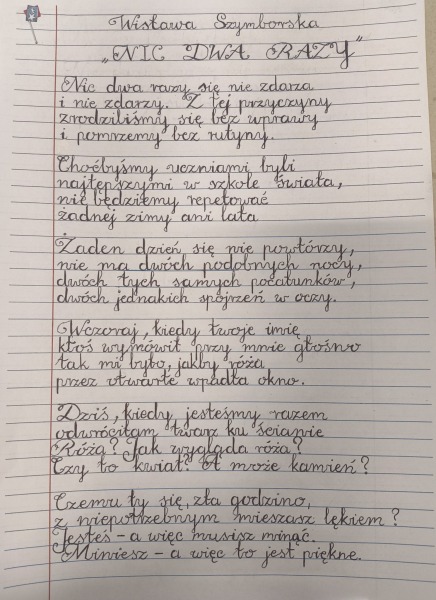 Wisława Szymborska
„NIC DWA RAZY"
Nic dwa razy się nie zdarza
i nie zdarzy. Z tej przyczyny
zrodziliśmy się bez wprawy
i pomrzemy bez rutyny.
Choćbyśmy uczniami byli
najtępszymi w szkole świata,
nie będziemy repetować
żadnej zimy ani lata.
Żaden dzień się nie powtórzy,
nie ma dwóch podobnych nocy,
dwóch tych samych pocałunków,
dwóch jednakich spojrzeń w oczy.
Wczoraj, kiedy twoje imię
ktoś wymówił przy mnie głośno
tak mi było, jakby róża
przez otwarte wpadła okno.
Dziś, kiedy jesteśmy razem
odwróciłam twarz ku ścianie
Róża? Jak wygląda róża?
Czy to kwiat? A może kamień?
Czemu ty się, zła godzino,
z niepotrzebnym mieszasz lękiem?
Jesteś - a więc musisz minąć.
Miniesz - a więc to jest piękne.